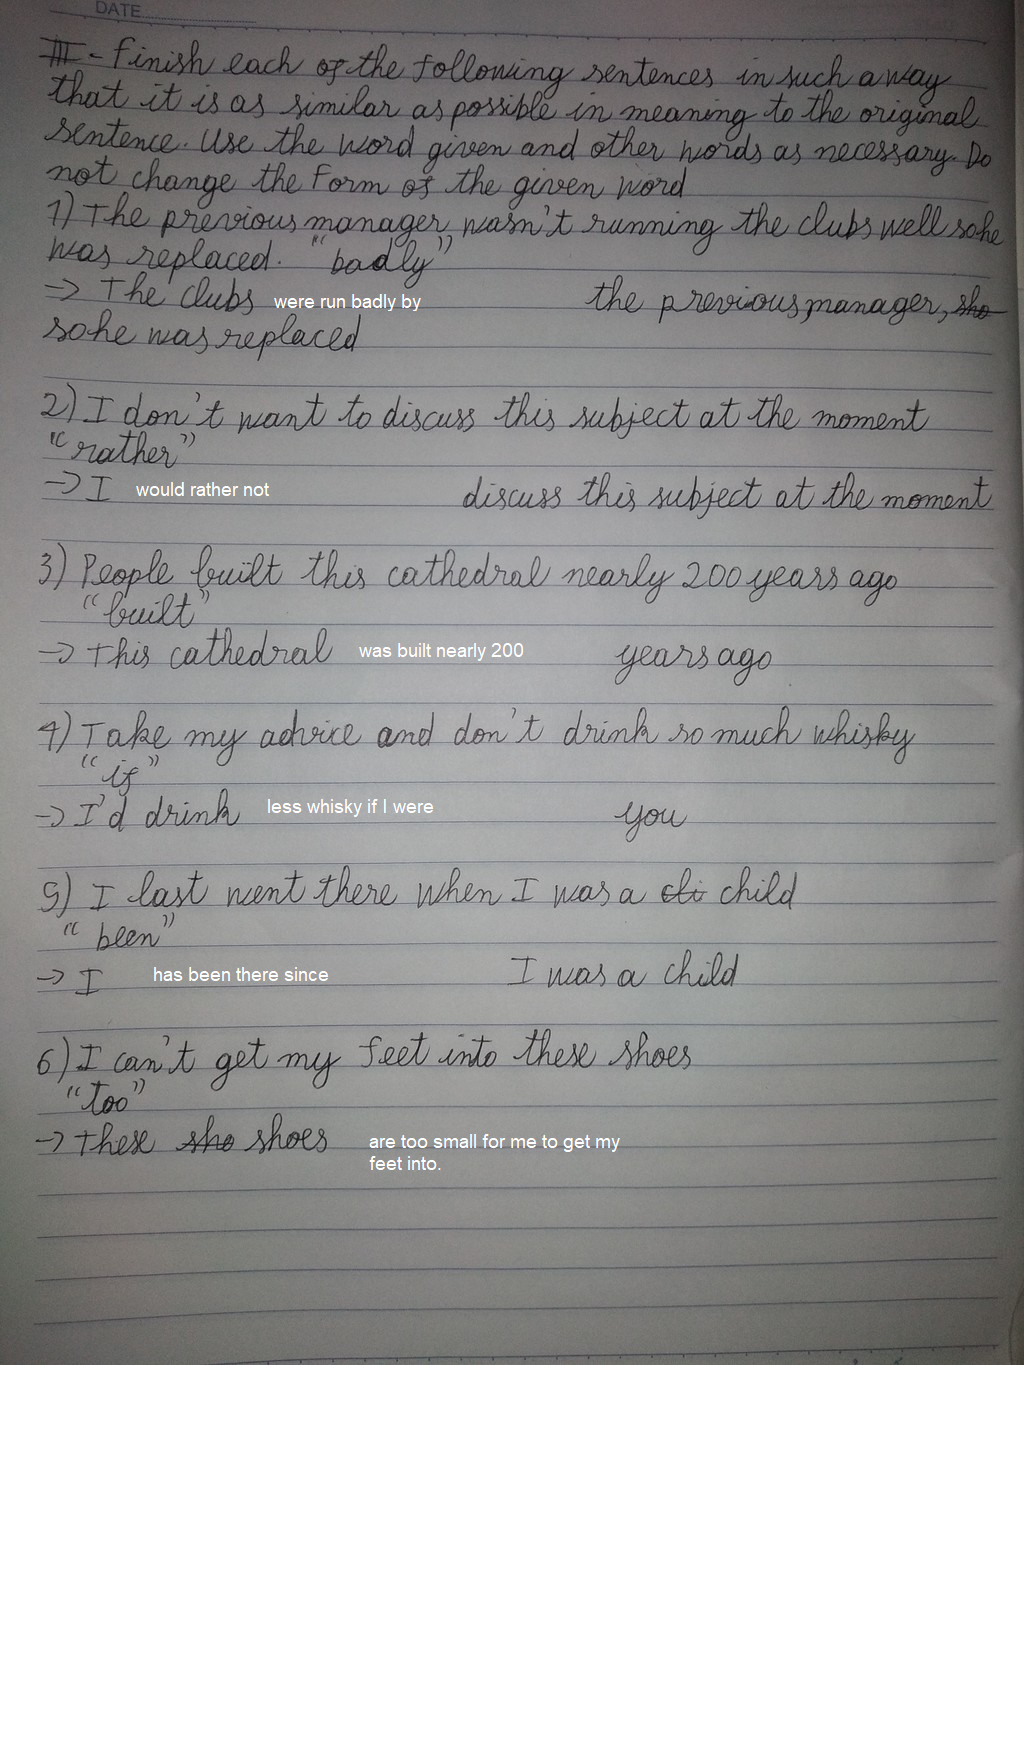 DATE
III - Finish each of the following sentences in such a way
that it is as similar as possible in meaning to the original
sentence. Use the word given and other words as necessary. Do
not change the form of the given word
1) The previous manager wasn't running the clubs well so he
was replaced. "badly"
-> The clubs were run badly by the previous manager, sho
so he was replaced
2) I don't want to discuss this subject at the moment
"rather"
-> I would rather not discuss this subject at the moment
3) People built this cathedral nearly 200 years ago
"built"
-> This cathedral was built nearly 200 years ago
4) Take my advice and don't drink so much whisky
"if"
-> I'd drink less whisky if I were you
5) I last went there when I was a cli child
"been"
-> I has been there since I was a child
6) I can't get my feet into these shoes
"too"
-> These sho shoes are too small for me to get my
feet into.